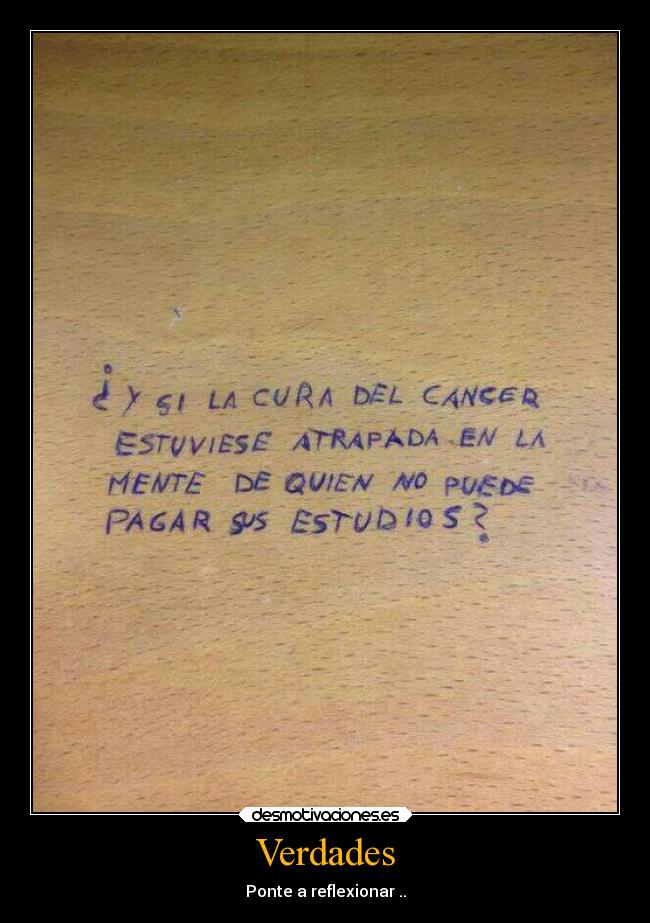 ¿Y SI LA CURA DEL CANCER
ESTUVIESE ATRAPADA EN LA
MENTE DE QUIEN NO PUEDE
PAGAR SUS ESTUDIOS?
desmotivaciones.es
Verdades
Ponte a reflexionar ..